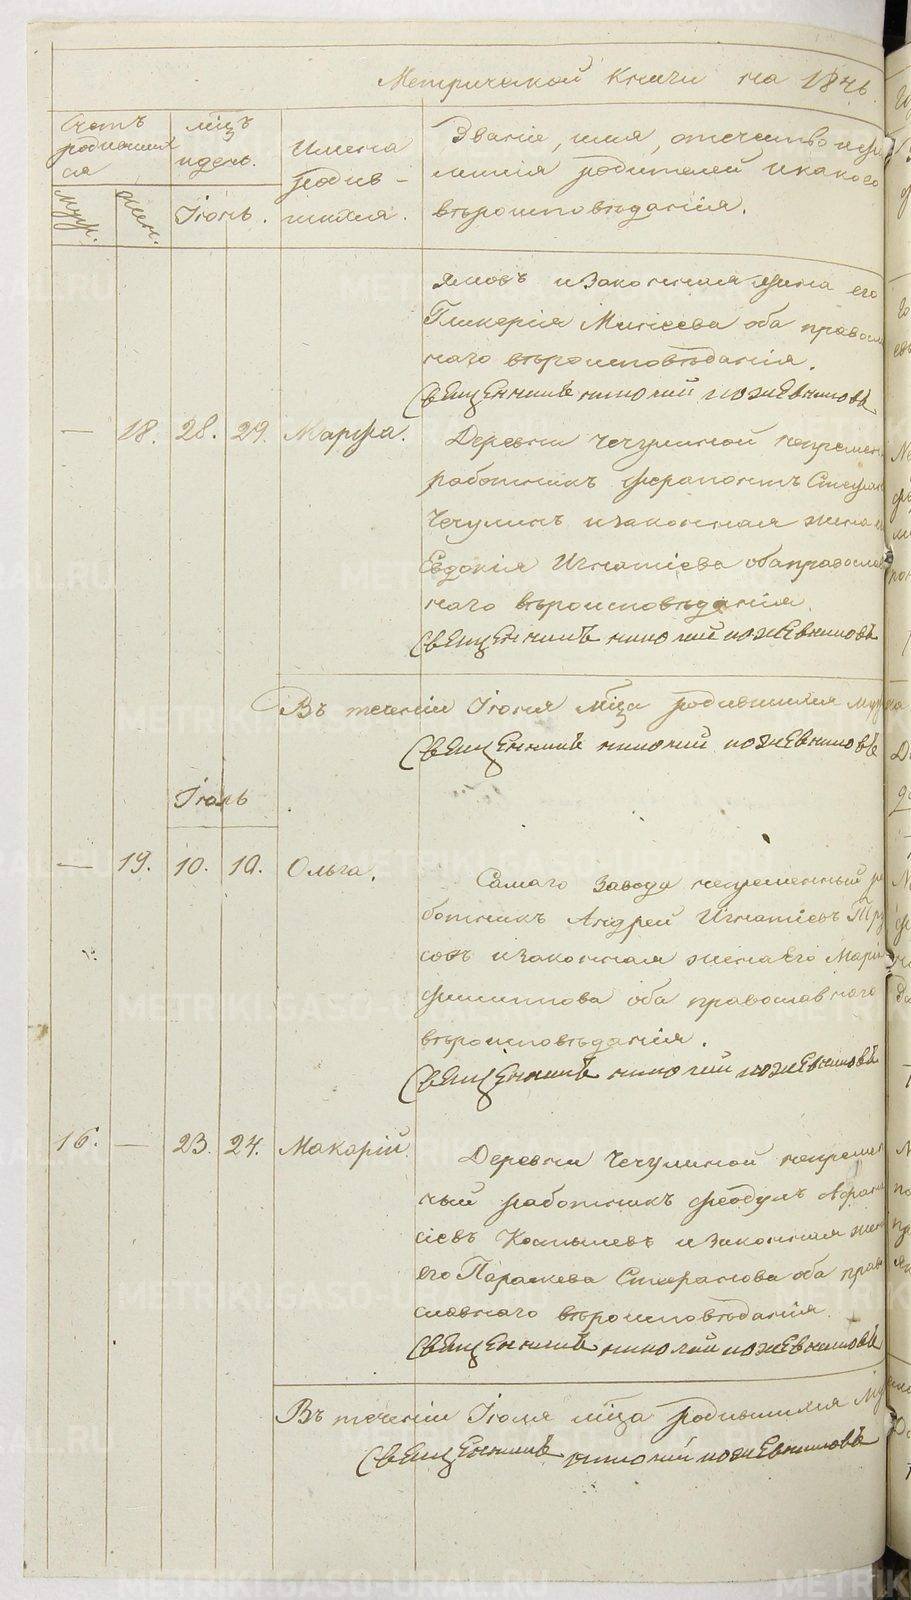 Метрической Книги на 1846.
Счетъ
родившихся
Муж.
Жен.
мцъ
и день.
Іюнь.
Имена
родив-
шихся.
Званіе, имя, отечество и фа
милія родителей и какого
вѣроисповѣданія.
и законная жена его
Гликерія Минѣева оба правосла
наго вѣроисповѣданія.
Священникъ Николай Кожевниковъ
— 18. 28. 29. Марѳа.
Деревни Чечулиной непремен
работникъ Ферапонтъ Стефан
Чечулинъ и законная жена
Евдокія Игнатіева оба православ
наго вѣроисповѣданія.
Священникъ Николай Кожевниковъ
Въ теченіи Іюня мца родившихся муж
Священникъ Николай Кожевниковъ
Іюль
— 19. 10. 10. Ольга.
Самаго Завода непременный ра
ботникъ Андрей Игнатіевъ Тру
совъ и законная жена Его Марія
Филиппова оба православнаго
вѣроисповѣданія.
Священникъ Николай Кожевниковъ
16. — 23. 24. Макарій.
Деревни Чечулиной непремен
ный работникъ Феодулъ Афана
сіевъ Костылевъ и Законная жена
его Параскева Стефанова оба право
славнаго вѣроисповѣданія.
Священникъ Николай Кожевниковъ
Въ теченіи Іюля мца родившихся му
Священникъ Николай Кожевниковъ
METRIKI.GASO-URAL.RU